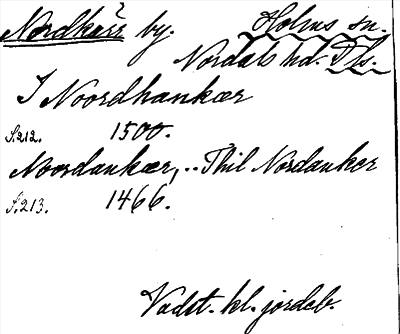 Nordkärr by. Holms sn.
Nordals hd. Dls.
I Noordhankær
S. 212. 1500.
Noordankær, .. Thil Nordanker
S. 213. 1466.
Vadst. kl. jordeb.